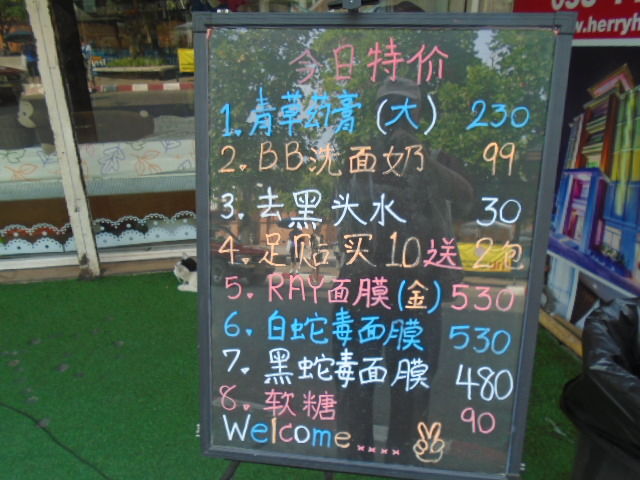 今日特价
1. 青草药膏 (大) 230
2. BB洗面奶 99
3. 去黑头水 30
4. 足贴买10送2包
5. RAY面膜(金) 530
6. 白蛇毒面膜 530
7. 黑蛇毒面膜 480
8. 软糖 90
Welcome....